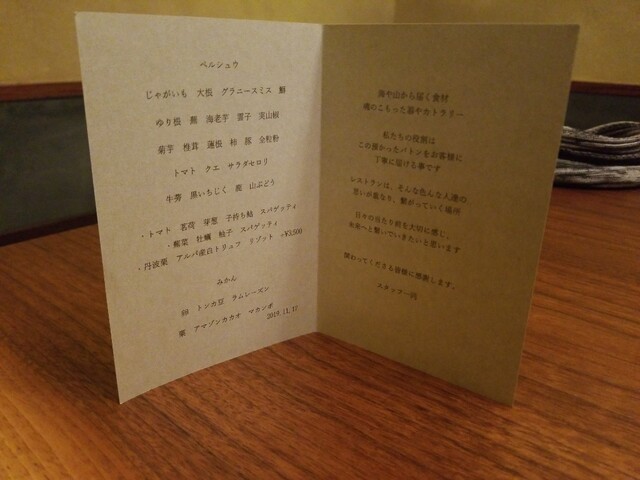 ペルシュウ
じゃがいも 大根 グラニースミス 鰆
ゆり根 鮑 海老芋 雲子 実山椒
菊芋 椎茸 蓮根 柿 豚 全粒粉
トマト クエ サラダセロリ
牛蒡 黒いちじく 鹿 山ぶどう
・トマト 茗荷 芽葱 子持ち鮎 スパゲッティ
・ 牡蠣 柚子 スパゲッティ
・丹波栗 アルバ産白トリュフ リゾット +¥3,500
みかん
卵 トンカ豆 ラムレーズン
栗 アマゾンカカオ マカンボ
2019.11.11
海や山から届く食材
魂のこもった器やカトラリー
私たちの役割は
この預かったバトンをお客様に
丁寧に届ける事です
レストランは、そんな色んな人達の
思いが重なり、繋がっていく場所
日々の当たり前を大切に感じ、
未来へと繋いでいきたいと思います
関わってくださる皆様に感謝します。
スタッフ一同